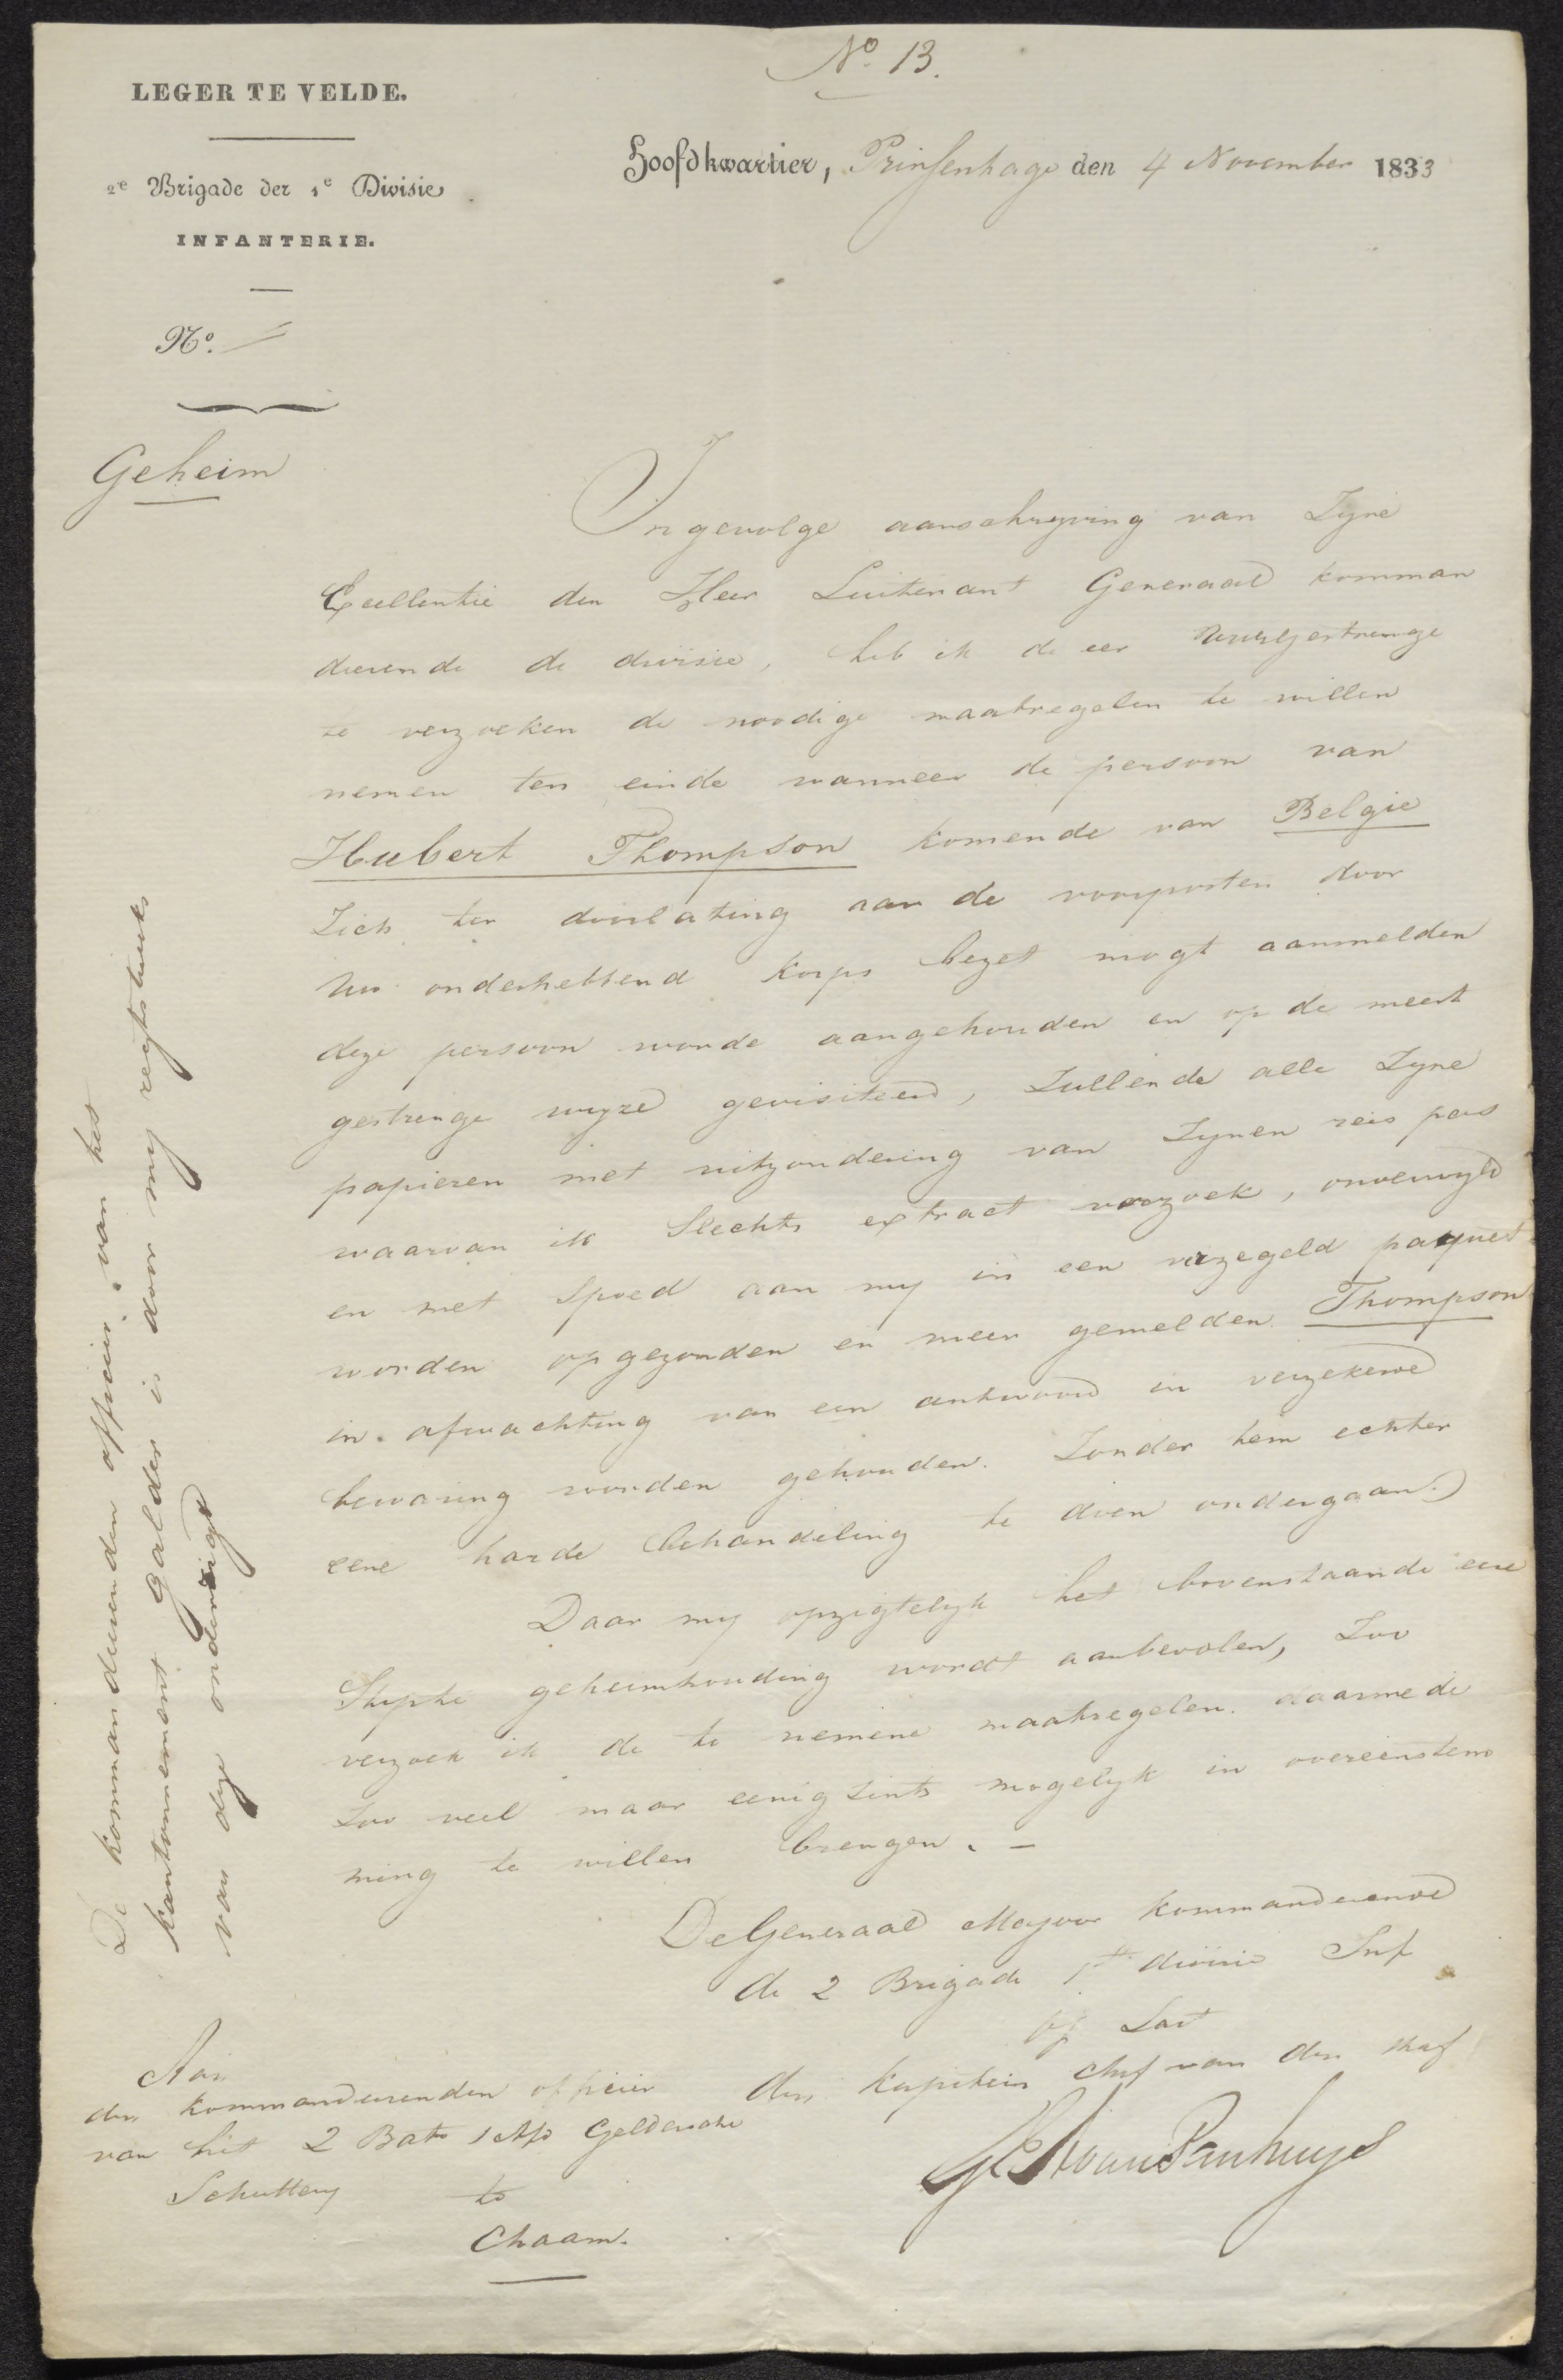 No 13.
LEGER TE VELDE.
2e Brigade der 1e Divisie
INFANTERIE.
No.
Hoofdkwartier, Prinsenhage den 4 November 1833
Geheim
Ingevolge aanschryving van Zyne
Excellentie den Heer Luitenant Generaal komman
deerende de divisie, heb ik de eer UwelEdgestrenge
te verzoeken de noodige maatregelen te willen
nemen ten einde wanneer de persoon van
Hubert Thompson komende van Belgie
Zich ter doorlating aan de voorposten door
Uw onderhebbend Korps bezet mogt aanmelden
deze persoon worde aangehouden en op de meest
gestrenge wyze gevisiteerd, Zullende alle Zyne
papieren met uitzondering van Zynen reis pas
waarvan ik Slechts extract verzoek, onverwyld
en met Spoed aan my in een verzegeld paquet
worden opgezonden en meer gemelden Thompson
in afwachting van een antwoord in verzekerde
bewaring worden gehouden. Zonder hem echter
eene harde behandeling te doen ondergaan.
Daar my opzigtelyk het bovenstaande eene
Stipte geheimhouding wordt aanbevolen, Zoo
verzoek ik de te nemene maatregelen daarmede
Zoo veel maar eenigzints mogelyk in overeenstem
ming te willen brengen. -
De Generaal Majoor kommanderende
de 2 Brigade 1ste divisie Inf
op Last
den Kapitein chef van den staf
van Panhuys
Aan
den kommanderenden officier
van het 2 Bat. 1 Afd Geldersche
Schuttery
te
Chaam.
De kommanderenden officier van het
kantonnement Galder is door my regtstreeks
van deze onderrigt